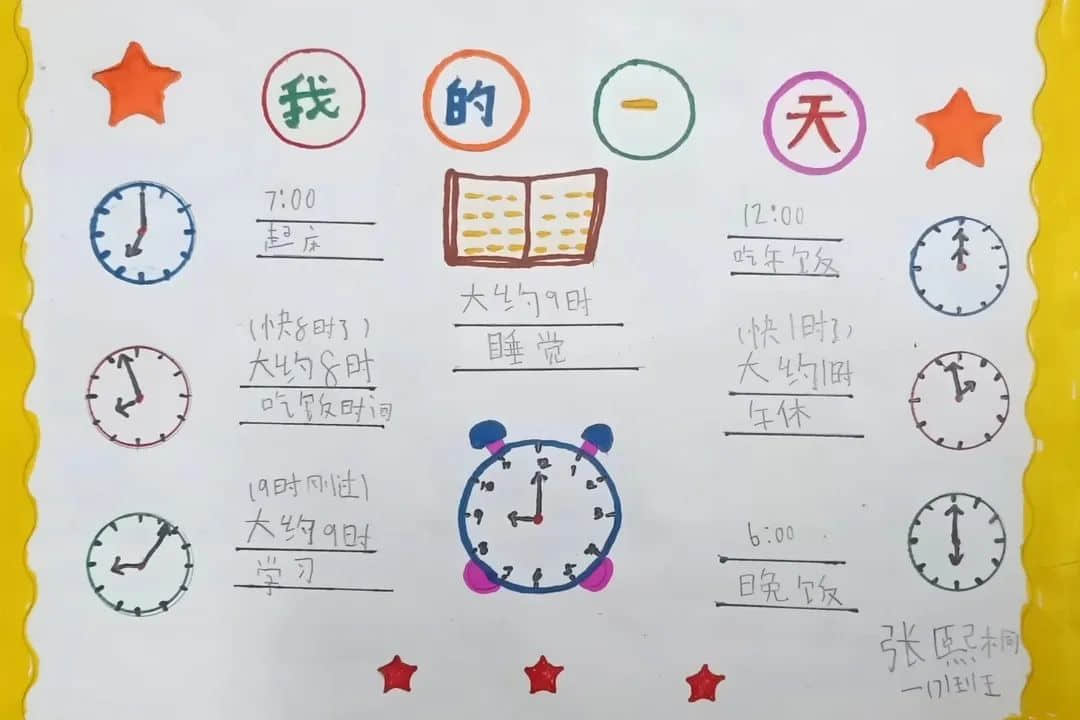 我的一天
7:00
起床
(快8时了)
大约8时
吃饭时间
(9时刚过)
大约9时
学习
大约9时
睡觉
12
1
2
3
4
5
6
7
8
9
10
11
12:00
吃午饭
(快1时了)
大约1时
午休
6:00
晚饭
张熙桐